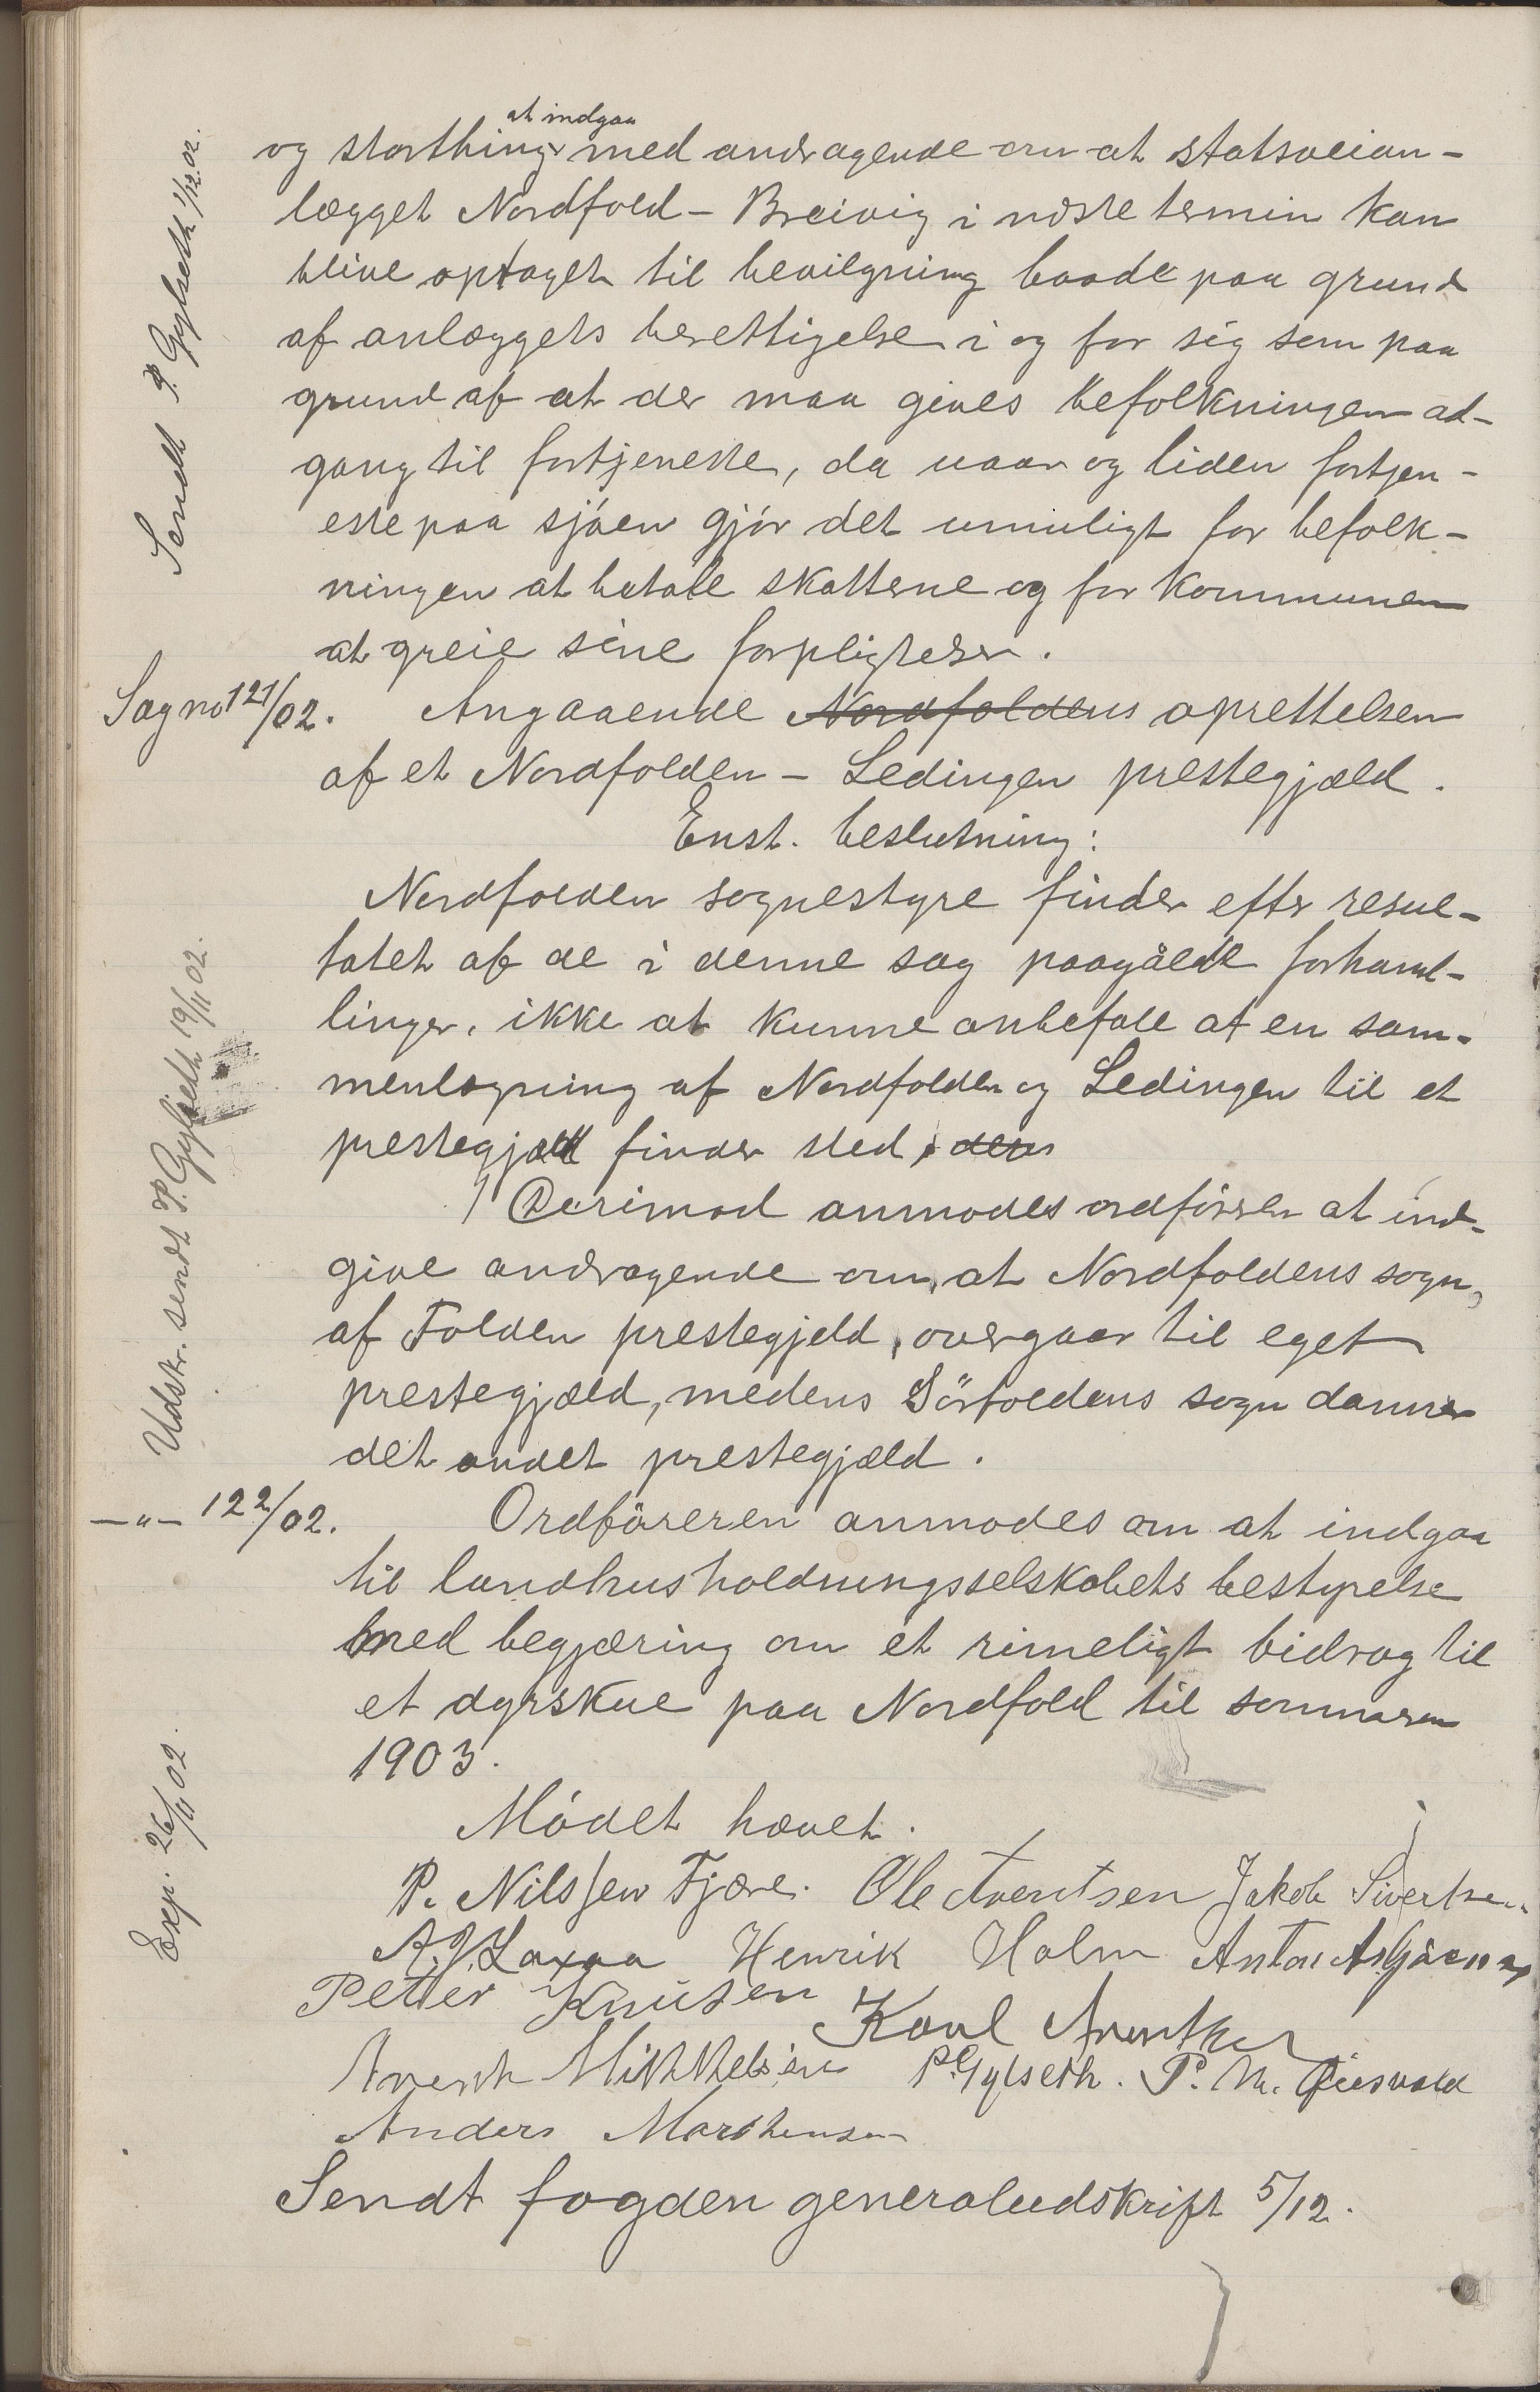 at indgaa
og storthing med andragende om at statsveian-
lægget Nordfold - Breivig i næste termin kan
blive optaget til bevilgning baade paa grund
af anlæggets berettigelse i og for sig som paa
grund af at der maa gives befolkningen ad-
gang til fortjeneste, da uaar og liden fortjen-
este paa sjøen gjør det umuligt for befolk-
ningen at betale skatterne og for kommunen
at greie sine forpligtelser.
Sendt P. Gylseth 1/12.02.
Sag no 121/02. Angaaende Nordfoldens oprettelsen
af et Nordfolden - Ledingen prestegjæld.
Enst. beslutning:
Nordfolden sognestyre finder efter resul-
tatet af de i denne sag paagåede forhand-
linger, ikke at kunne anbefale at en sam-
menlægning af Nordfolden og Ledingen til et
prestegjæld finder sted, den
Derimod anmodes ordføreren at ind-
give andragende om, at Nordfoldens sogn,
af Folden prestegjeld, overgaar til eget
prestegjæld, medens Sörfoldens sogn danner
det andet prestegjæld.
Udskr. sendt P. Gylseth 19/11 02.
-"- 122/02. Ordføreren anmodes om at indgaa
til landhusholdningsselskabets bestyrelse
med begjæring om et rimeligt bidrag til
et dyrskue paa Nordfold til sommeren
1903.
Exp. 26/11 02.
Mödet hævet.
P. Nilssen Fjære. Ole Arentsen Jakob Sivertsen
A. J. Laxaa Henrik Holm Anton
Petter Knutsen Karl Arentsen
Arent Mikkelsen P. Gylseth. P. M.
Anders Marthensen
Sendt fogden generaludskrift 5/12.